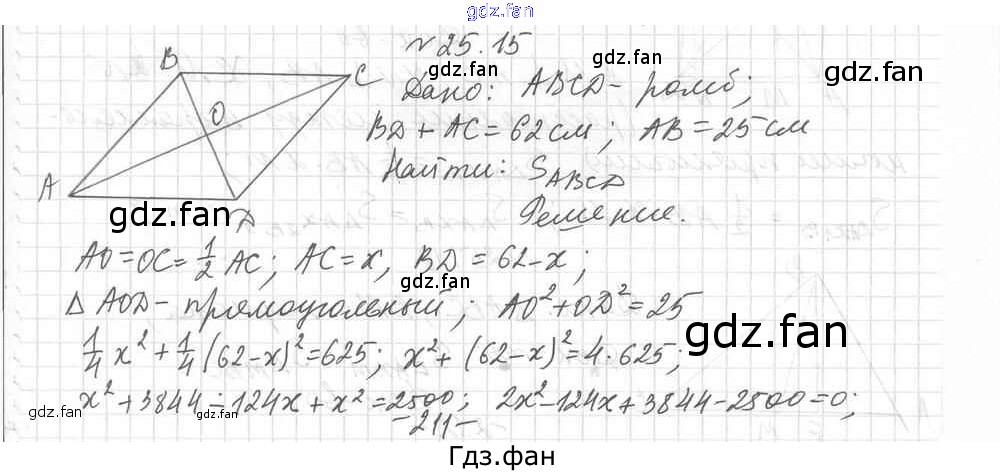 gdz.fan
№ 25.15
gdz.fan
gdz.fan
B C O A D
Дано: ABCD - ромб;
BD + AC = 62 см; AB = 25 см
gdz.fan
Найти: S_ABCD
gdz.fan
Решение.
AO = OC = 1/2 AC; AC = x, BD = 62 - x;
△ AOD - прямоугольный; AO² + OD² = 25
gdz.fan
1/4 x² + 1/4 (62 - x)² = 625; x² + (62 - x)² = 4 · 625;
x² + 3844 - 124x + x² = 2500; 2x² - 124x + 3844 - 2500 = 0;
gdz.fan gdz.fan gdz.fan
- 211 -
Гдз.фан